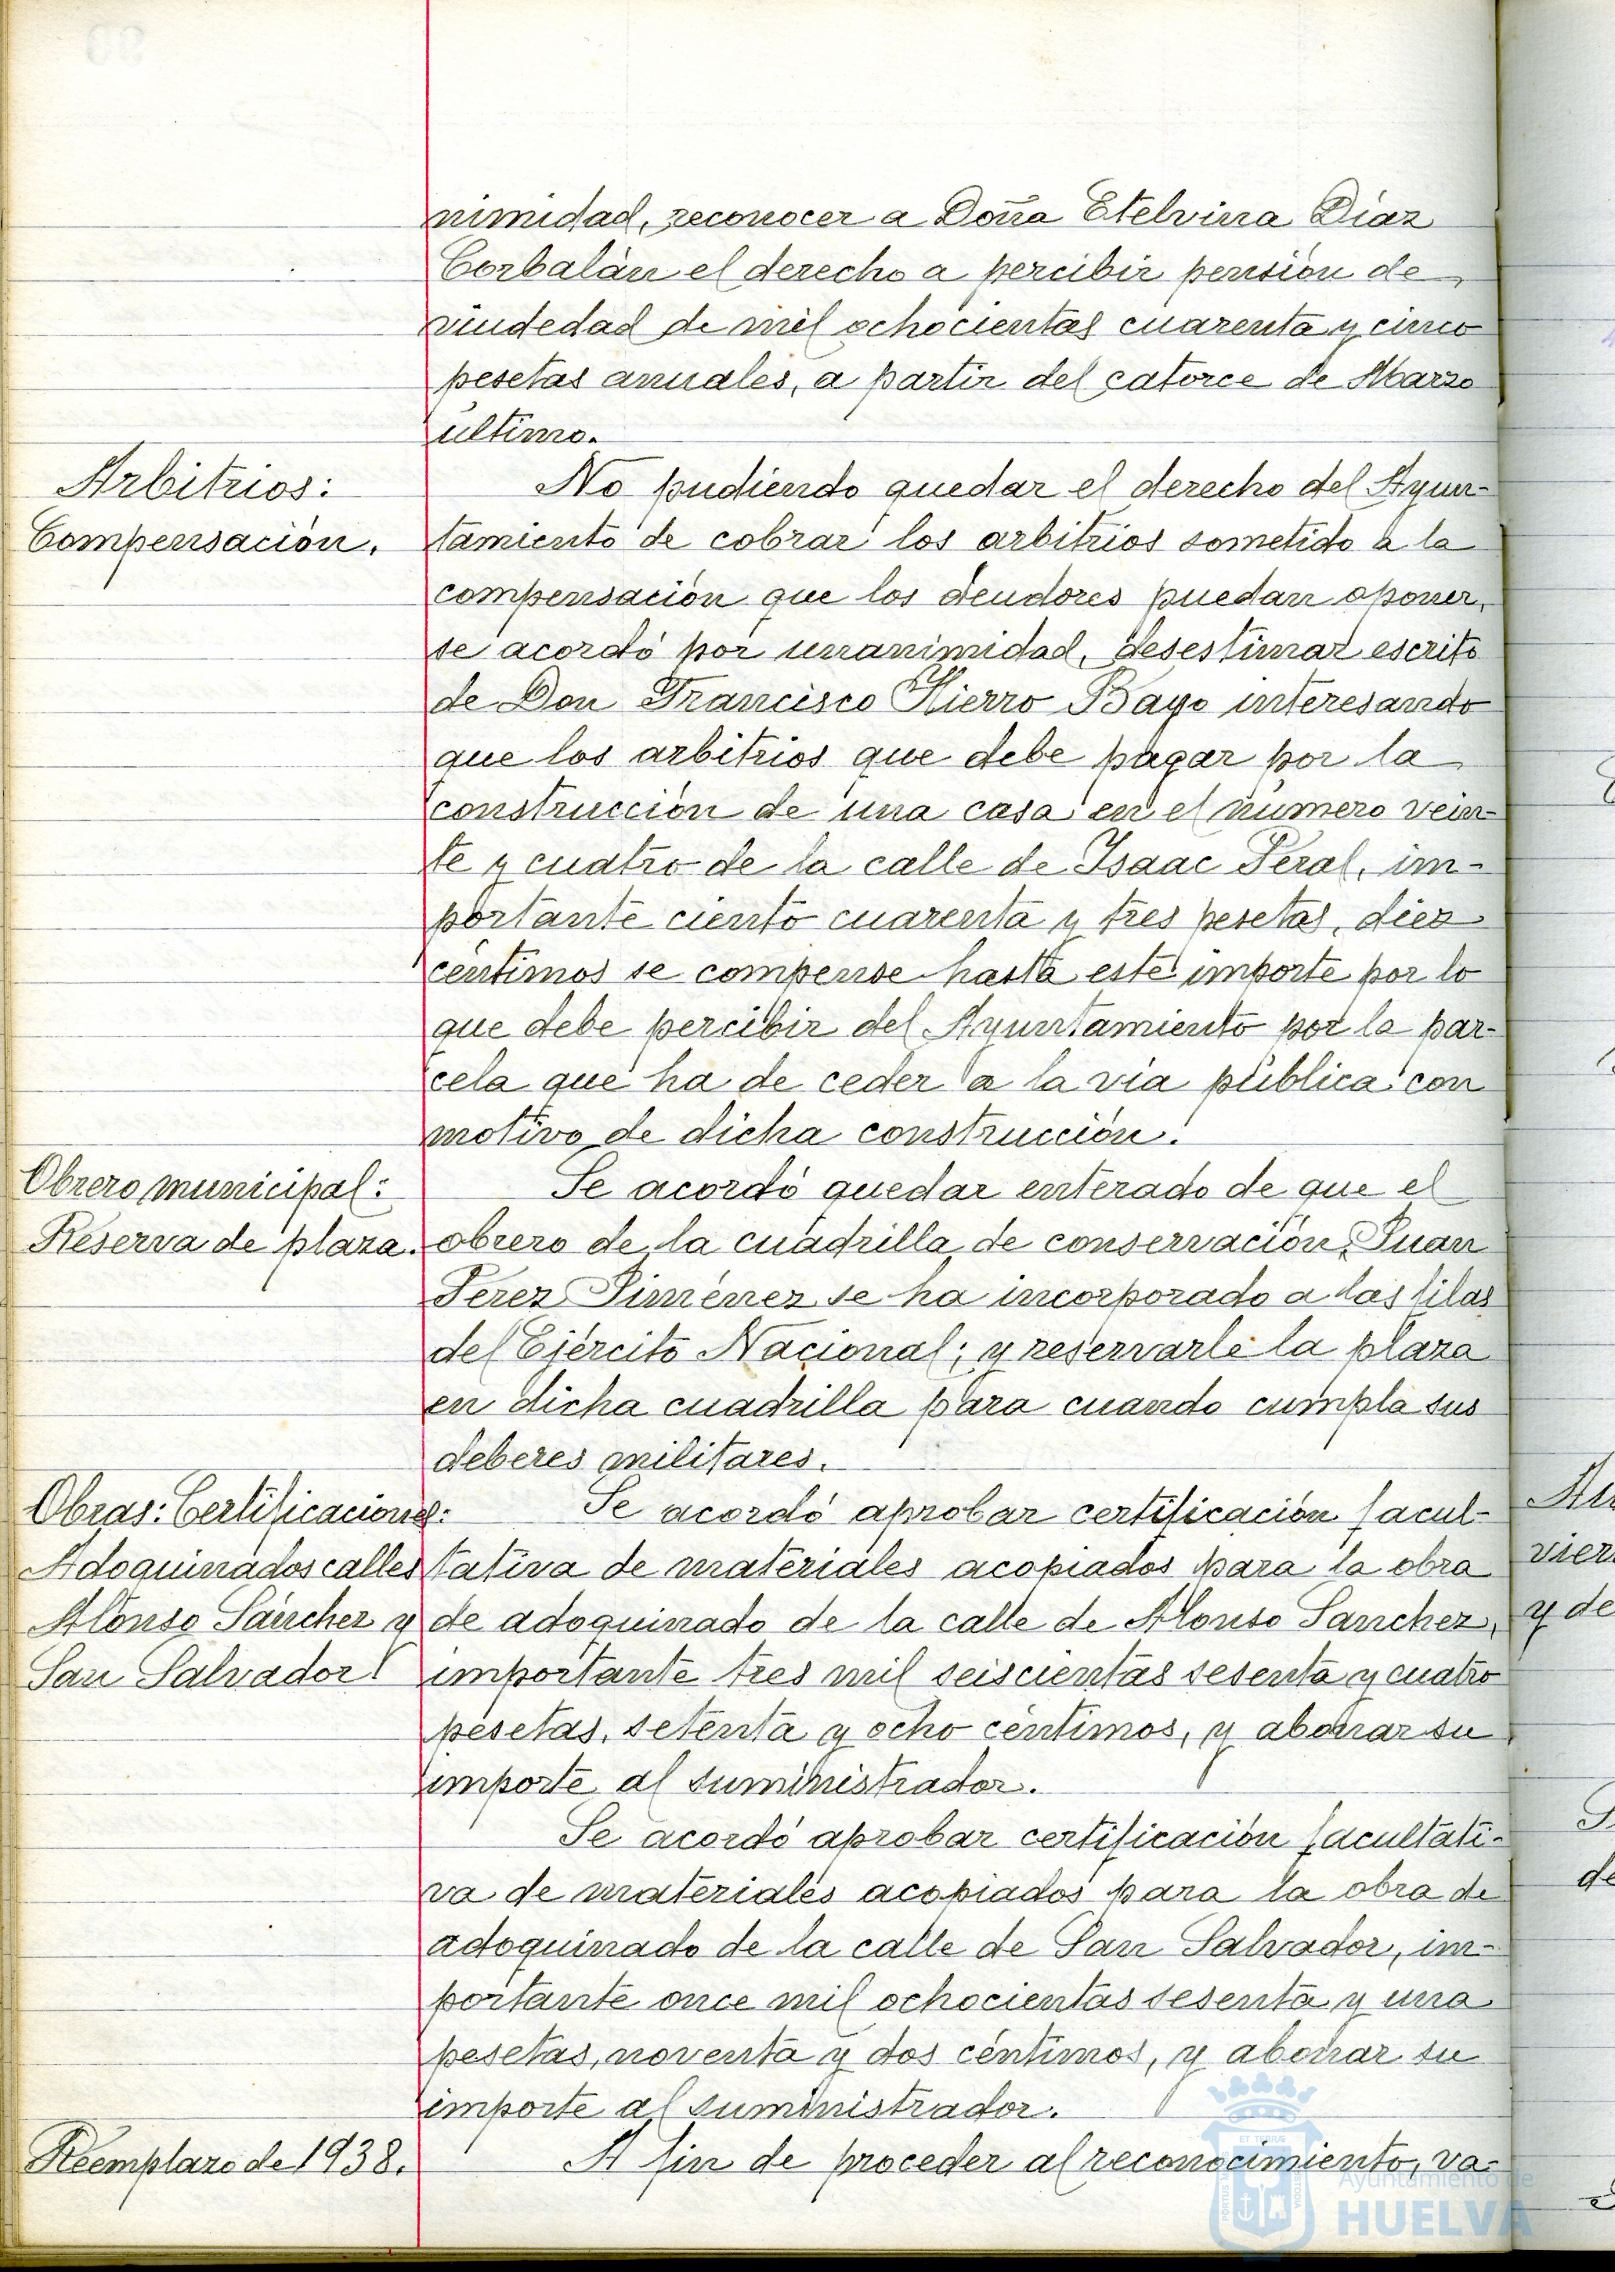 nimidad, reconocer a Doña Etelvina Díaz
Corbalán el derecho a percibir pensión de
viudedad de mil ochocientas cuarenta y cinco
pesetas anuales, a partir del catorce de Marzo
último.
Arbitrios:
Compensación.
No pudiendo quedar el derecho del Ayun-
tamiento de cobrar los arbitrios sometido a la
compensación que los deudores puedan oponer,
se acordó por unanimidad, desestimar escrito
de Don Francisco Hierro Bayo interesando
que los arbitrios que debe pagar por la
construcción de una casa en el número vein-
te y cuatro de la calle de Isaac Peral, im-
portante ciento cuarenta y tres pesetas, diez
céntimos se compense hasta este importe por lo
que debe percibir del Ayuntamiento por la par-
cela que ha de ceder a la vía pública con
motivo de dicha construcción.
Obrero municipal:
Reserva de plaza.
Se acordó quedar enterado de que el
obrero de la cuadrilla de conservación, Juan
Perez Jiménez se ha incorporado a las filas
del Ejército Nacional; y reservarle la plaza
en dicha cuadrilla para cuando cumpla sus
deberes militares.
Obras: Certificaciones:
Adoquinados calles
Alonso Sánchez y
San Salvador
Se acordó aprobar certificación facul-
tativa de materiales acopiados para la obra
de adoquinado de la calle de Alonso Sanchez,
importante tres mil seiscientas sesenta y cuatro
pesetas, setenta y ocho céntimos, y abonar su
importe al suministrador.
Se acordó aprobar certificación facultati-
va de materiales acopiados para la obra de
adoquinado de la calle de San Salvador, im-
portante once mil ochocientas sesenta y una
pesetas, noventa y dos céntimos, y abonar su
importe al suministrador.
Reemplazo de 1938.
A fin de proceder al reconocimiento, va-
Ayuntamiento de
HUELVA